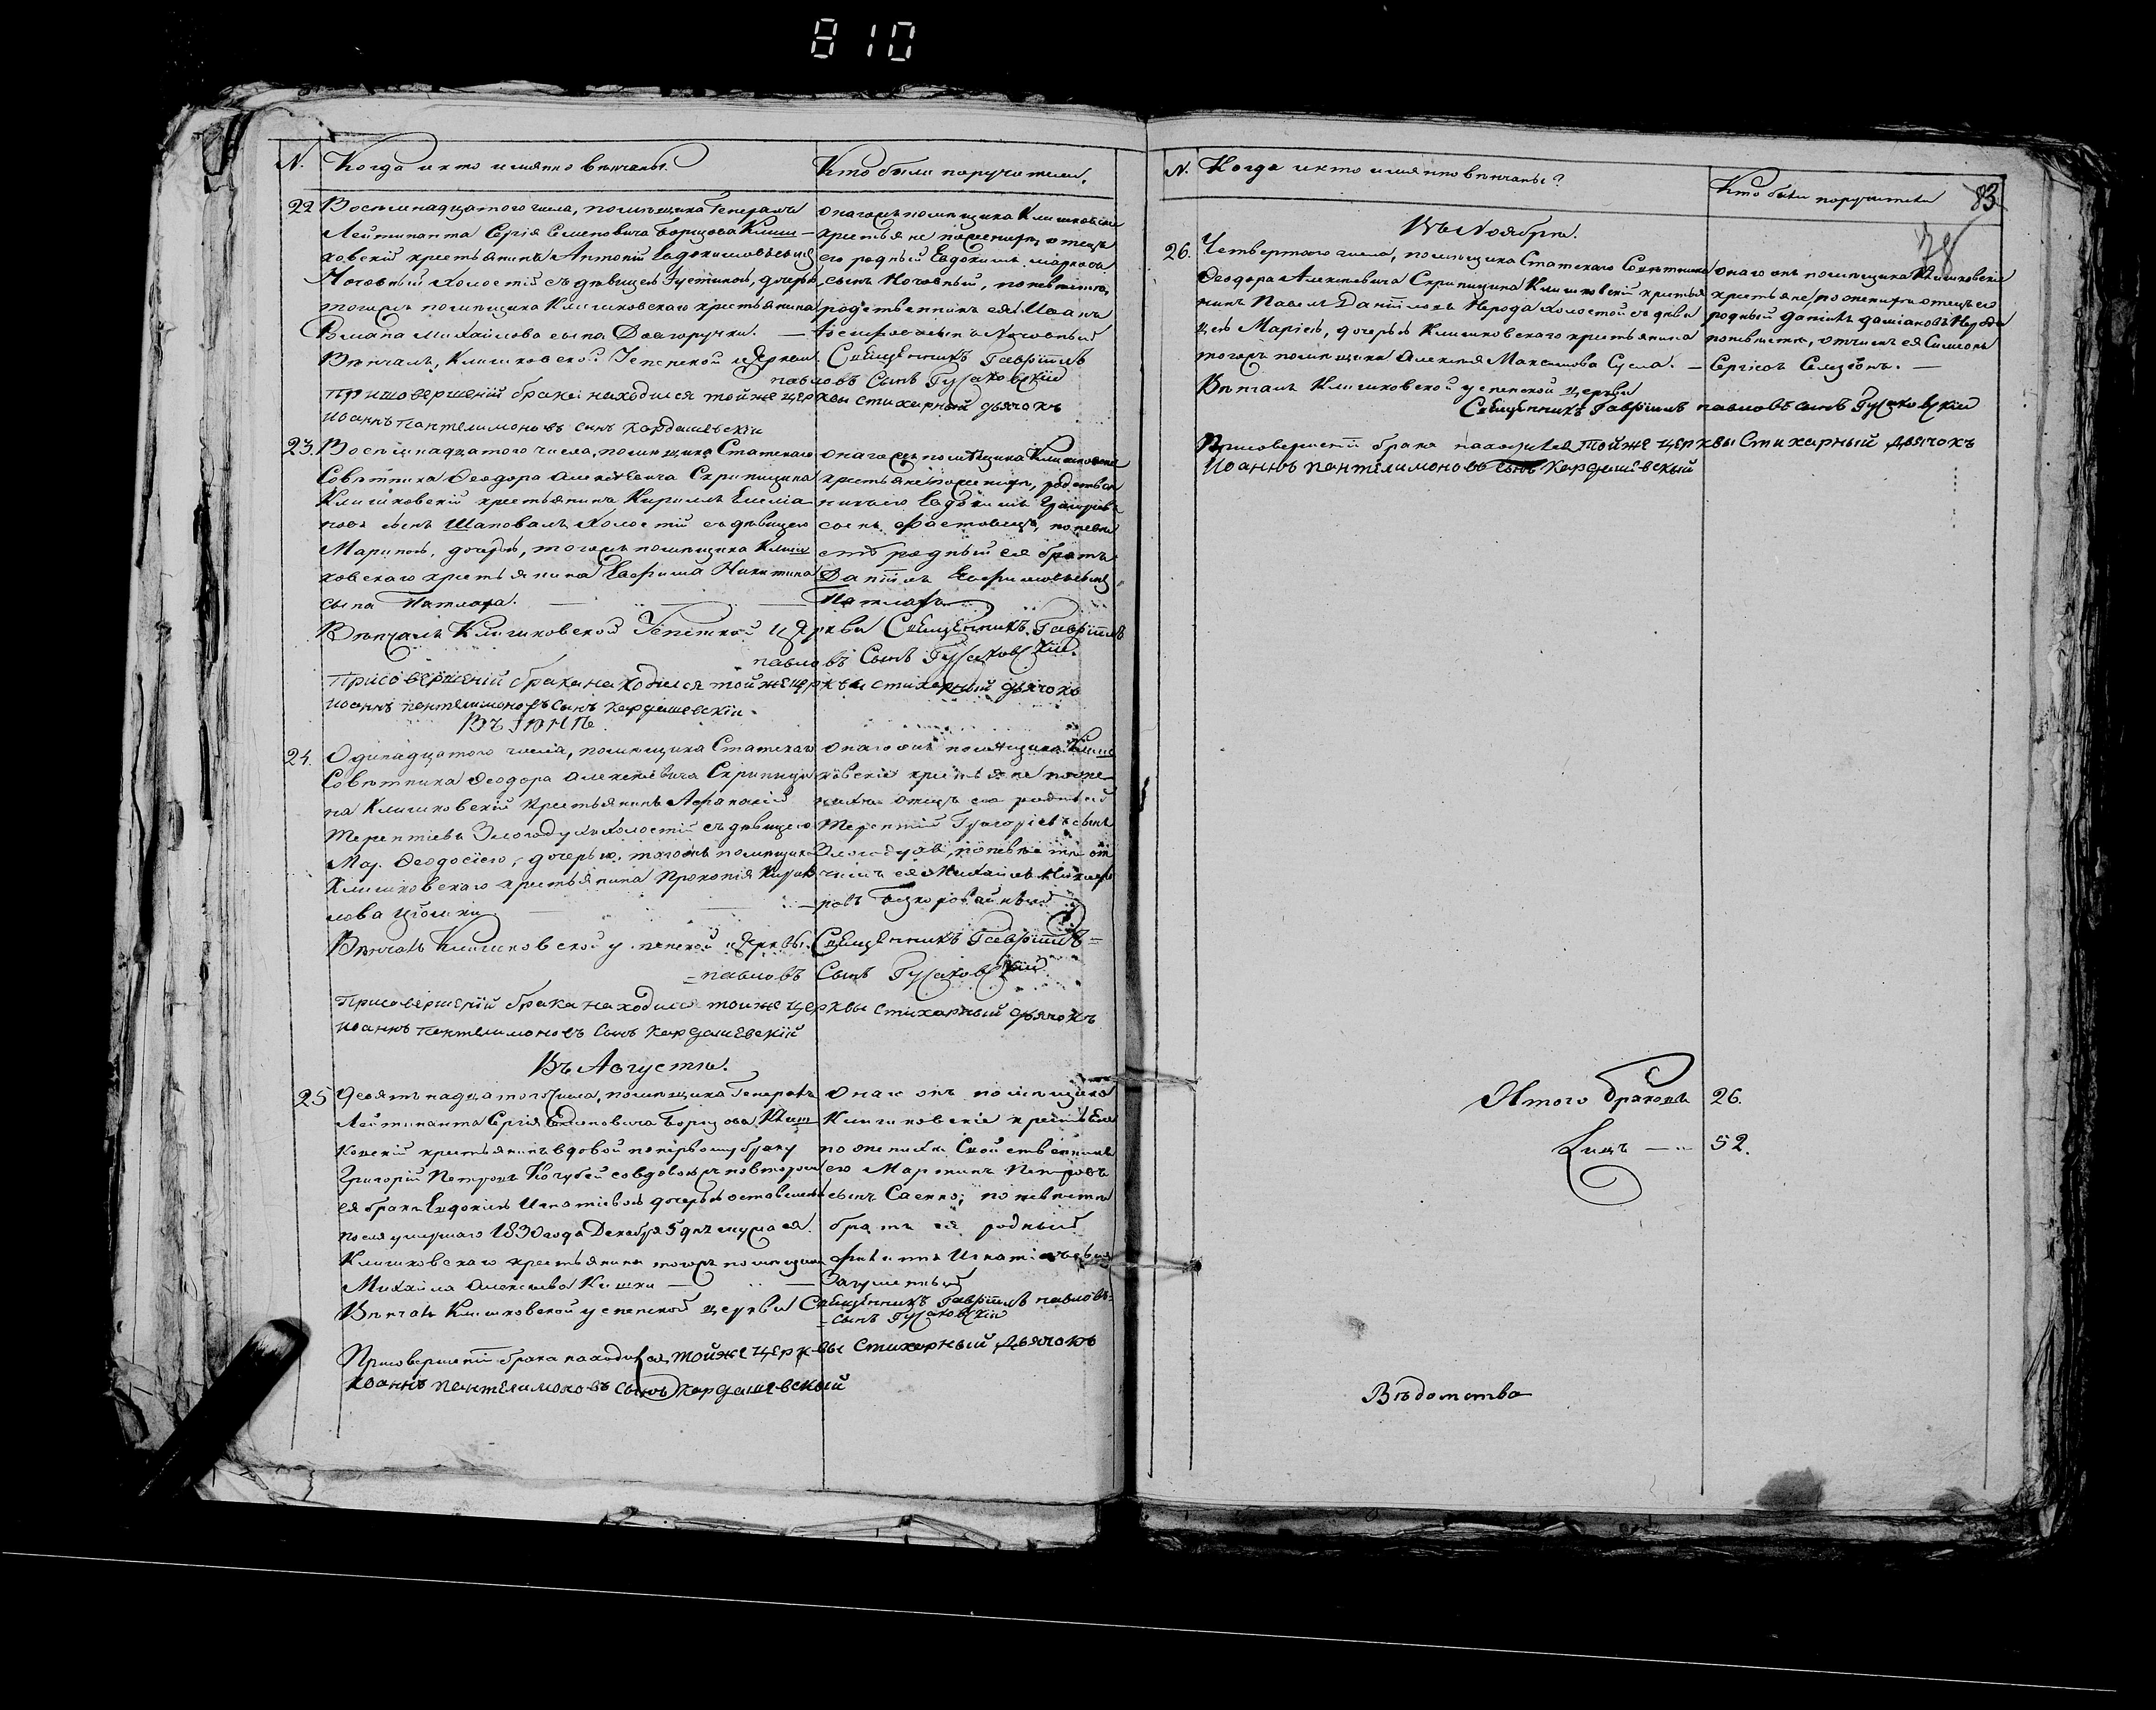 810
N. Когда и кто имянно вѣнчаны. Кто были поручители.
22 Восемнадцатого числа, помѣщика Генералъ
Лейтинанта Сергія Семеновича Борщова Клиш-
ковскій крестьянинъ Антоній Евдокимовъ сынъ
холостій съ дѣвицею Іустиною, дочерью
тогожъ помѣщика Клишковскаго крестьянина
Романа Михайлова сына Долгоручки.
онагожъ помѣщика Клишковскіе
крестьяне по жениху отецъ
его родный Евдокимъ Марковъ
сынъ, по невѣстѣ
родственникъ ея Иванъ
Вѣнчалъ, Клишковской Успенской церкви Священникъ Гавріилъ
павловъ Сынъ Гусаковскій
При совершеніи брака находился тойже церквы стихарный дьячокъ
Иоаннъ пантелимоновъ сынъ кардашевскій
23. Восемнадцатого числа, помѣщика Статскаго
Совѣтника Феодора Алексѣевича Скрипицина
Клишковскій крестьянинъ Кириллъ Емеліа-
новъ сынъ Шаповалъ холостій съ дѣвицею
Мариною, дочерью, тогожъ помѣщика Клиш
ковскаго крестьянина Евфима Никитина
сына Патлаха.
онагожъ помѣщика Клишковскіе
крестьяне по жениху, родствен
никъ его Евдокимъ Григоріевъ
сынъ Фастовецъ, по невѣ
стѣ родный ея братъ
Даніилъ Евфимовъ сынъ
Патлахъ
Вѣнчалъ Клишковской Успенской церкви Священникъ Гавріилъ
павловъ Сынъ Гусаковскій.
При совершеніи брака находился тойже церквы стихарный дьячокъ
Иоаннъ пантелимоновъ сынъ кардашевскій.
Въ Іюнѣ.
24. Одинадцатого числа, помѣщика Статскаго
Совѣтника Феодора Алексѣевича Скрипици
на Клишковскій крестьянинъ Афанасій
Терентіевъ Злогодухъ холостій съ дѣвицею
Феодосіею, дочерью, тогожъ помѣщика
Клишковскаго крестьянина Прокопія Кирил
лова
онагожъ помѣщика Клиш
ковскіе крестьяне по же-
ниху отецъ его родный
Терентій Григоріевъ сынъ
Злогодухъ, по невѣстѣ от
чимъ ея Михаилъ
новъ
Вѣнчалъ Клишковской успенской церквы Священникъ Гавріилъ
павловъ Сынъ Гусаковскій
При совершеніи брака находился тойже церквы стихарный дьячокъ
Иоаннъ пантелимоновъ сынъ кардашевскій
Въ Августѣ.
25 Девятьнадцатого числа, помѣщика Генералъ
Лейтинанта Сергія Семеновича Борщова Клиш
ковскій крестьянинъ вдовой по первому браку
Григорій Петровъ Кочубей со вдовою по второмъ
ея бракѣ Евдокіею Игнатіевою дочерью оставшеюсь
послѣ умершаго 1830 года Декабря 5 дня мужа ея
Клишковскаго крестьянина тогожъ помѣщика
Михаила Алексѣева Кишки
онагожъ помѣщика
Клишковскіе крестьяне
по жениху Свойственникъ
его Мартинъ Петровъ
сынъ Саенко; по невѣстѣ
братъ ея родный
Игнатіевъ сынъ
Вѣнчалъ Клишковской успенской церкви Священникъ Гавріилъ павловъ
сынъ Гусаковскій
При совершеніи брака находился тойже церквы стихарный Дьячокъ
Иоаннъ пантелимоновъ сынъ кардашевскый
N. Когда и кто имянно вѣнчаны? Кто были поручители 83
78
Въ Ноябрѣ.
26. Четвертого числа, помѣщика Статскаго Совѣтника
Феодора Алексѣевича Скрипицина Клишковскій крестья
нинъ Павелъ Даніиловъ Нерода холостой съ дѣви
цею Маріею, дочерью Клишковскаго крестьянина
тогожъ помѣщика Алексѣя Максимова Сусла.
онагожъ помѣщика Клишковскіе
крестьяне, по жениху отецъ его
родный Даніилъ Даміановъ Нерода
по невѣстѣ, отчимъ ея Симеонъ
Сергіевъ
Вѣнчалъ Клишковской успенской церкви
Священникъ Гавріилъ павловъ сынъ Гусаковскій
При совершеніи брака находился тойже церквы Стихарный дьячокъ
Иоаннъ пантелимоновъ сынъ кардашевскый
Итого браковъ 26.
Лицъ 52.
Вѣдомства